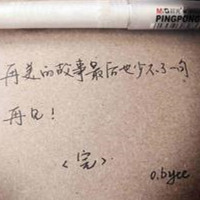 M&G 晨光 ®
PINGPONG
再美的故事最后也少不了一句
再见！
<完>
o.byee